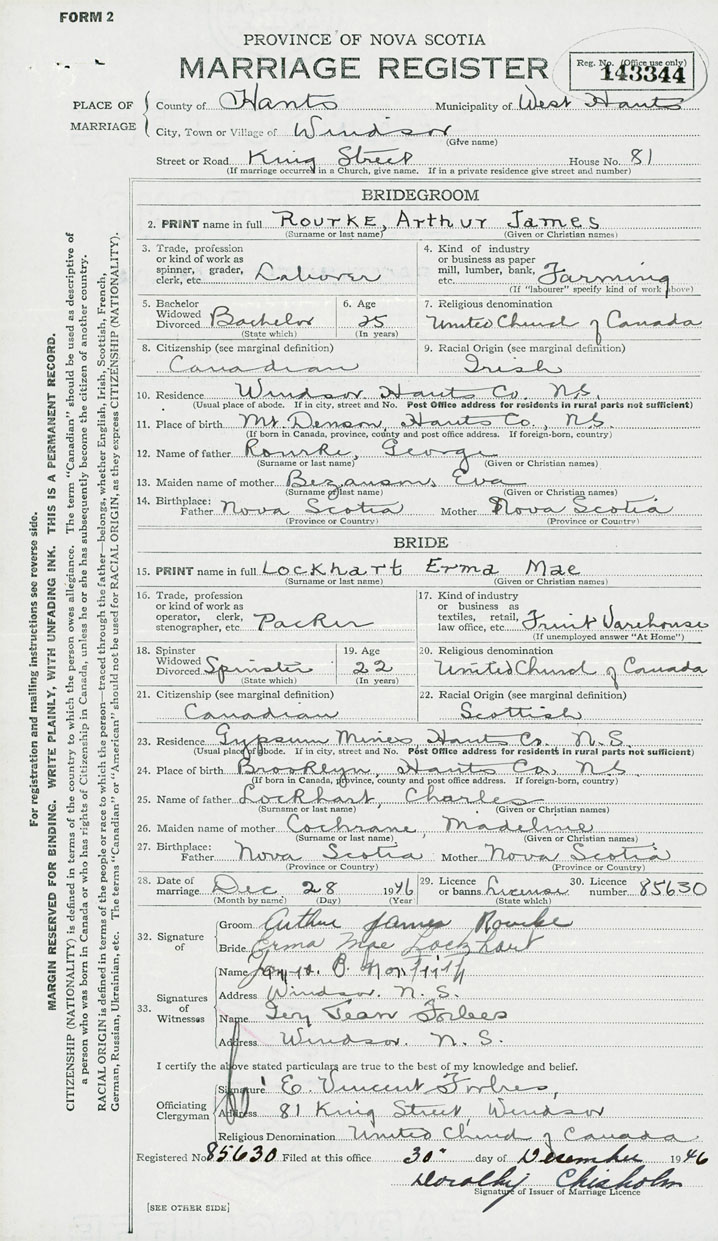 FORM 2
PROVINCE OF NOVA SCOTIA
MARRIAGE REGISTER
Reg. No. (Office use only)
143344
PLACE OF MARRIAGE
County of Hants Municipality of West Hants
City, Town or Village of Windsor
(Give name)
Street or Road King Street House No. 81
(If marriage occurred in a Church, give name. If in a private residence give street and number)
BRIDEGROOM
2. PRINT name in full ROURKE, Arthur James
(Surname or last name) (Given or Christian names)
3. Trade, profession or kind of work as spinner, grader, clerk, etc. Laborer
4. Kind of industry or business as paper mill, lumber, bank, etc. Farming
(If "labourer" specify kind of work above)
5. Bachelor Widowed Divorced Bachelor
(State which)
6. Age 25
(In years)
7. Religious denomination
United Church of Canada
8. Citizenship (see marginal definition)
Canadian
9. Racial Origin (see marginal definition)
Irish
10. Residence Windsor Hants Co. N.S.
(Usual place of abode. If in city, street and No. Post Office address for residents in rural parts not sufficient)
11. Place of birth Mt Denson, Hants Co., N.S.
(If born in Canada, province, county and post office address. If foreign-born, country)
12. Name of father Rourke, George
(Surname or last name) (Given or Christian names)
13. Maiden name of mother Bezanson, Eva
(Surname or last name) (Given or Christian names)
14. Birthplace: Father Nova Scotia Mother Nova Scotia
(Province or Country) (Province or Country)
BRIDE
15. PRINT name in full Lockhart Erma Mae
(Surname or last name) (Given or Christian names)
16. Trade, profession or kind of work as operator, clerk, stenographer, etc. Packer
17. Kind of industry or business as textiles, retail, law office, etc. Fruit Warehouse
(If unemployed answer "At Home")
18. Spinster Widowed Divorced Spinster
(State which)
19. Age 22
(In years)
20. Religious denomination
United Church of Canada
21. Citizenship (see marginal definition)
Canadian
22. Racial Origin (see marginal definition)
Scottish
23. Residence Gypsum Mines, Hants Co. N.S.
(Usual place of abode. If in city, street and No. Post Office address for residents in rural parts not sufficient)
24. Place of birth Brooklyn, Hants Co., N.S.
(If born in Canada, province, county and post office address. If foreign-born, country)
25. Name of father Lockhart, Charles
(Surname or last name) (Given or Christian names)
26. Maiden name of mother Cochrane, Madeline
(Surname or last name) (Given or Christian names)
27. Birthplace: Father Nova Scotia Mother Nova Scotia
(Province or Country) (Province or Country)
28. Date of marriage Dec 28 1946
(Month by name) (Day) (Year)
29. Licence or banns License
(State which)
30. Licence number 85630
32. Signature of
Groom Arthur James Rourke
Bride Erma Mae Lockhart
33. Signatures of Witnesses
Name B.
Address Windsor. N.S.
Name Jean Forbes
Address Windsor. N.S.
I certify the above stated particulars are true to the best of my knowledge and belief.
Officiating Clergyman
Signature E. Vincent Forbes,
Address 81 King Street, Windsor
Religious Denomination United Church of Canada
Registered No 85630 Filed at this office 30" day of December 1946
Dorothy Chisholm
Signature of Issuer of Marriage Licence
[SEE OTHER SIDE]
For registration and mailing instructions see reverse side.
MARGIN RESERVED FOR BINDING. WRITE PLAINLY, WITH UNFADING INK. THIS IS A PERMANENT RECORD.
CITIZENSHIP (NATIONALITY) is defined in terms of the country to which the person owes allegiance. The term "Canadian" should be used as descriptive of
a person who was born in Canada or who has rights of Citizenship in Canada, unless he or she has subsequently become the citizen of another country.
RACIAL ORIGIN is defined in terms of the people or race to which the person—traced through the father—belongs, whether English, Irish, Scottish, French,
German, Russian, Ukrainian, etc. The terms "Canadian" or "American" should not be used for RACIAL ORIGIN, as they express CITIZENSHIP (NATIONALITY).